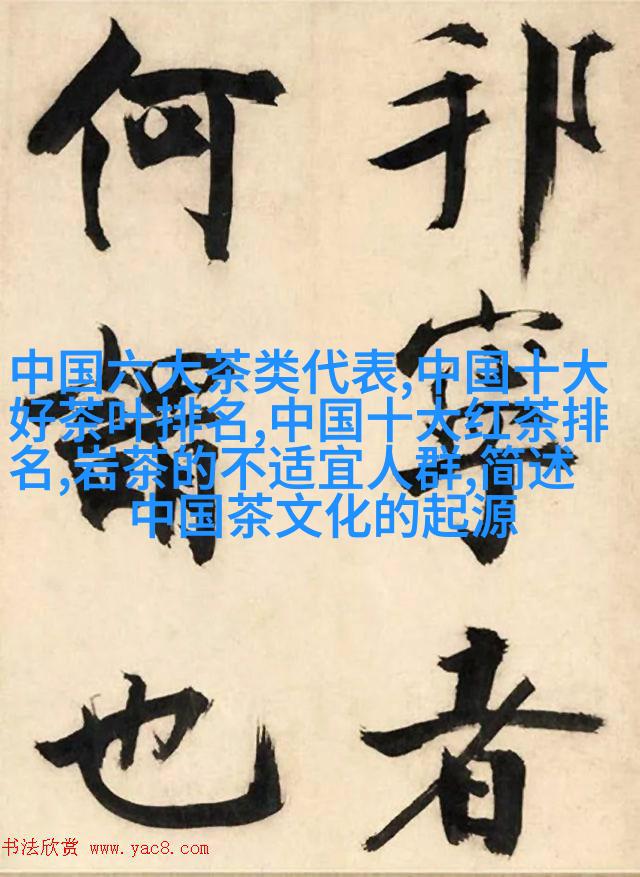 邦寧者
何謂也
中国六大茶类代表,中国十大
好茶叶排名,中国十大红茶排
名,岩茶的不适宜人群,简述
中国茶文化的起源
书法欣赏 www.yac8.com